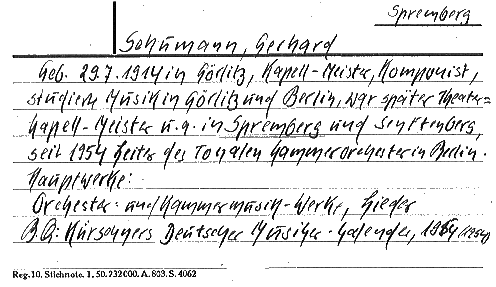 Spremberg
Schumann, Gerhard
Geb. 29.7.1914 in Görlitz, Kapell-Meister, Komponist,
studierte Musik in Görlitz und Berlin, war später Theater=
Kapell-Meister u.a. in Spremberg und Senftenberg,
seit 1954 Leiter des Tonalen Kammerorchester in Berlin.
Hauptwerke:
Orchester- und Kammermusik-Werke, Lieder
BQ: Kürschners Deutscher Musiker-Kalender, 1954
Reg. 10. Stichnote. 1, 50. 232000. A. 803. S. 4062